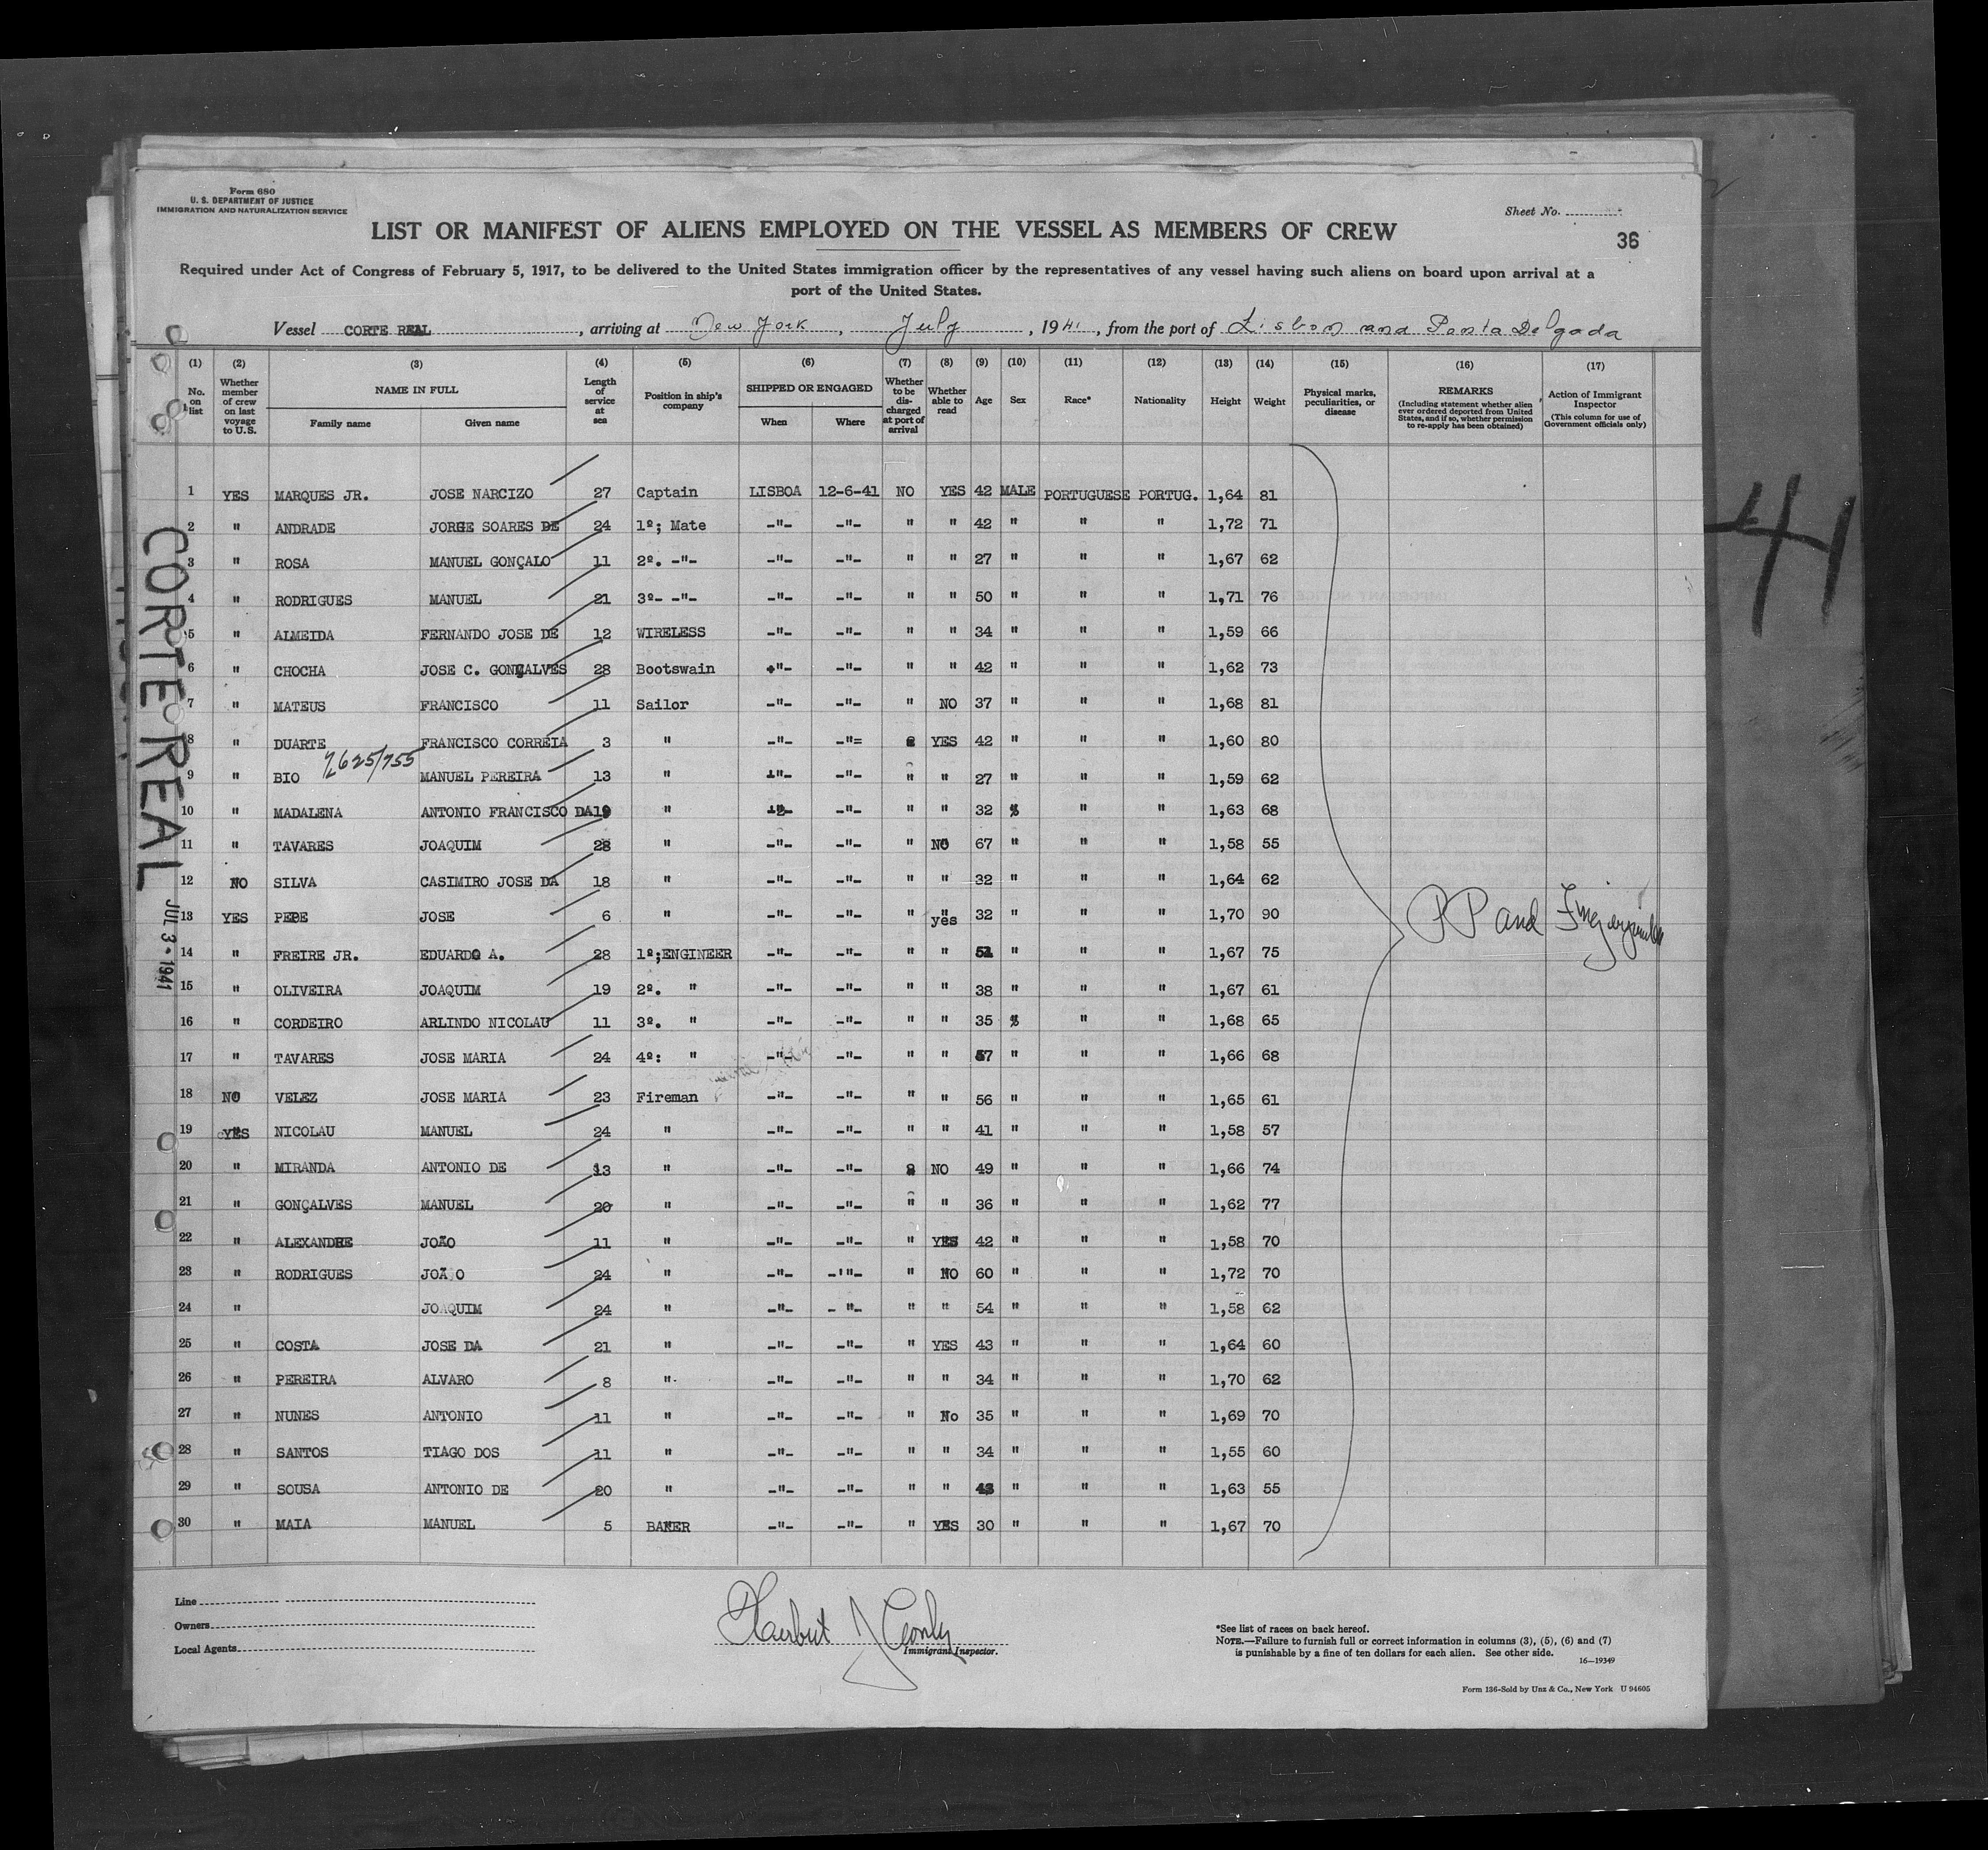 Form 680
U. S. DEPARTMENT OF JUSTICE
IMMIGRATION AND NATURALIZATION SERVICE
Sheet No.
36
LIST OR MANIFEST OF ALIENS EMPLOYED ON THE VESSEL AS MEMBERS OF CREW
Required under Act of Congress of February 5, 1917, to be delivered to the United States immigration officer by the representatives of any vessel having such aliens on board upon arrival at a
port of the United States.
Vessel CORTE REAL, arriving at New York, July, 1941, from the port of Lisbon and Ponta Delgada
(1) No. on list
(2) Whether member of crew on last voyage to U.S.
(3) NAME IN FULL Family name Given name
(4) Length of service at sea
(5) Position in ship's company
(6) SHIPPED OR ENGAGED When Where
(7) Whether to be discharged at port of arrival
(8) Whether able to read
(9) Age
(10) Sex
(11) Race*
(12) Nationality
(13) Height
(14) Weight
(15) Physical marks, peculiarities, or disease
(16) REMARKS (Including statement whether alien ever ordered deported from United States, and if so, whether permission to re-apply has been obtained)
(17) Action of Immigrant Inspector (This column for use of Government officials only)
1 YES MARQUES JR. JOSE NARCIZO 27 Captain LISBOA 12-6-41 NO YES 42 MALE PORTUGUESE PORTUG. 1,64 81
2 " ANDRADE JORGE SOARES DE 24 1º; Mate -"- -"- " " 42 " " " 1,72 71
3 " ROSA MANUEL GONÇALO 11 2º. -"- -"- -"- " " 27 " " " 1,67 62
4 " RODRIGUES MANUEL 21 3º- -"- -"- -"- " " 50 " " " 1,71 76
5 " ALMEIDA FERNANDO JOSE DE 12 WIRELESS -"- -"- " " 34 " " " 1,59 66
6 " CHOCHA JOSE C. GONÇALVES 28 Bootswain -"- -"- " " 42 " " " 1,62 73
7 " MATEUS FRANCISCO 11 Sailor -"- -"- " NO 37 " " " 1,68 81
8 " DUARTE FRANCISCO CORREIA 3 " -"- -"= YES 42 " " " 1,60 80
9 " BIO 7625/755 MANUEL PEREIRA 13 " -"- -"- " " 27 " " " 1,59 62
10 " MADALENA ANTONIO FRANCISCO DA 19 " -"- " " 32 % " " 1,63 68
11 " TAVARES JOAQUIM 28 " -"- -"- " NO 67 " " " 1,58 55
12 NO SILVA CASIMIRO JOSE DA 18 " -"- -"- " " 32 " " " 1,64 62
13 YES PEPE JOSE 6 " -"- -"- " yes 32 " " " 1,70 90
14 " FREIRE JR. EDUARDO A. 28 1º;ENGINEER -"- -"- " " 51 " " " 1,67 75
15 " OLIVEIRA JOAQUIM 19 2º. " -"- -"- " " 38 " " " 1,67 61
16 " CORDEIRO ARLINDO NICOLAU 11 3º. " -"- -"- " " 35 % " " 1,68 65
17 " TAVARES JOSE MARIA 24 4º: " -"- -"- " " 57 " " " 1,66 68
18 NO VELEZ JOSE MARIA 23 Fireman -"- -"- " " 56 " " " 1,65 61
19 YES NICOLAU MANUEL 24 " -"- -"- " " 41 " " " 1,58 57
20 " MIRANDA ANTONIO DE 13 " -"- -"- NO 49 " " " 1,66 74
21 " GONÇALVES MANUEL 20 " -"- -"- " " 36 " " " 1,62 77
22 " ALEXANDRE JOÃO 11 " -"- -"- " YES 42 " " " 1,58 70
23 " RODRIGUES JOÃO 24 " -"- -'"- " NO 60 " " " 1,72 70
24 " JOAQUIM 24 " -"- - "- " " 54 " " " 1,58 62
25 " COSTA JOSE DA 21 " -"- -"- " YES 43 " " " 1,64 60
26 " PEREIRA ALVARO 8 " -"- -"- " " 34 " " " 1,70 62
27 " NUNES ANTONIO 11 " -"- -"- " No 35 " " " 1,69 70
28 " SANTOS TIAGO DOS 11 " -"- -"- " " 34 " " " 1,55 60
29 " SOUSA ANTONIO DE 20 " -"- -"- " " " " " 1,63 55
30 " MAIA MANUEL 5 BAKER -"- -"- " YES 30 " " " 1,67 70
PP and
CORTE REAL
JUL 3 - 1941
41
Line
Owners
Local Agents
Immigrant Inspector.
*See list of races on back hereof.
NOTE.—Failure to furnish full or correct information in columns (3), (5), (6) and (7)
is punishable by a fine of ten dollars for each alien. See other side.
16—19349
Form 136-Sold by Unz & Co., New York U 94605